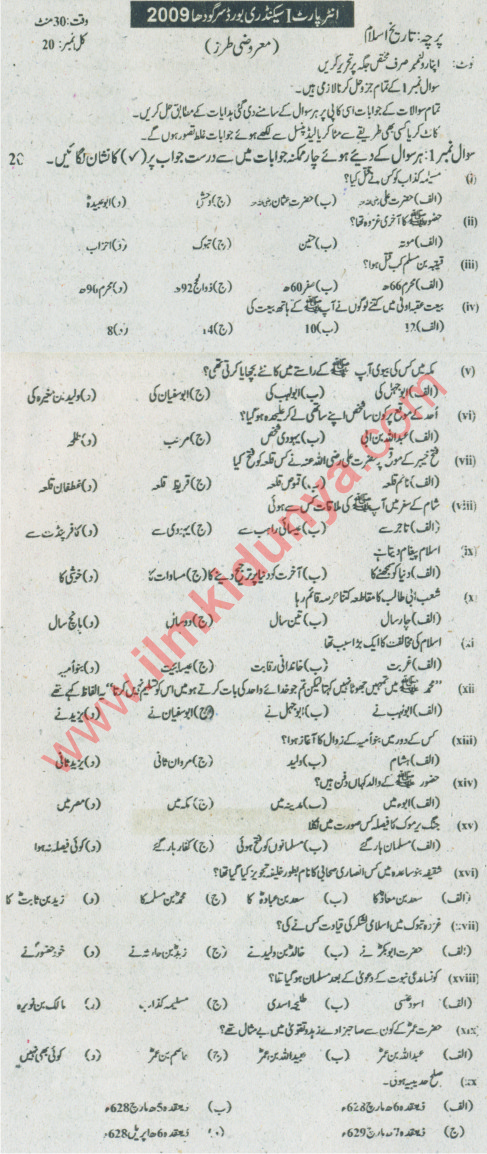 انٹر پارٹ I سیکنڈری بورڈ سرگودھا 2009
پرچہ: تاریخ اسلام (معروضی طرز) وقت: 30 منٹ
کل نمبر: 20
نوٹ: اپنا رولنمبر صرف مختص جگہ پر تحریر کریں
سوال نمبر 1 کے تمام جزو حل کرنا لازمی ہیں۔
تمام سوالات کے جوابات اسی کاپی پر ہر سوال کے سامنے دی گئی ہدایات کے مطابق حل کریں۔
کاٹ کر یا کسی بھی طریقے سے مٹا کر یا لیڈ پنسل سے لکھے ہوئے جوابات غلط تصور ہوں گے۔
سوال نمبر 1: ہر سوال کے دیئے ہوئے چار ممکنہ جوابات میں سے درست جواب پر (✓) کا نشان لگائیں۔ 20
(i) مسیلمہ کذاب کو کس نے قتل کیا؟
(الف) حضرت علی (ب) حضرت عثمان (ج) وحشی (د) ابو عبیدہ
(ii) حضور ﷺ کا آخری غزوہ تھا؟
(الف) موتہ (ب) حنین (ج) تبوک (د) احزاب
(iii) قتیبہ بن مسلم کب قتل ہوا؟
(الف) محرم 66ھ (ب) سفر 60ھ (ج) ذوالحج 92ھ (د) محرم 96ھ
(iv) بیعت عقبہ اولیٰ میں کتنے لوگوں نے آپ ﷺ کے ہاتھ بیعت کی
(الف) 12 (ب) 10 (ج) 14 (د) 8
(v) مکہ میں کس کی بیوی آپ ﷺ کے راستے میں کانٹے بچھایا کرتی تھی؟
(الف) ابوجہل کی (ب) ابولہب کی (ج) ابوسفیان کی (د) ولید بن مغیرہ کی
(vi) اُحد کے موقع پر کون سا شخص اپنے ساتھی لے کر علیحدہ ہو گیا؟
(الف) عبداللہ بن ابی (ب) یہودی شخص (ج) مرحب (د) طلحہ
(vii) فتح خیبر کے موقع پر حضرت علی رضی اللہ عنہ نے کس قلعہ کو فتح کیا
(الف) نائم قلعہ (ب) قموص قلعہ (ج) قریظ قلعہ (د) غطفان قلعہ
(viii) شام کے سفر میں آپ ﷺ کی ملاقات کس سے ہوئی
(الف) تاجر سے (ب) عیسائی راہب سے (ج) یہودی سے (د) کافر پنڈت سے
(ix) اسلام پیغام دیتا ہے
(الف) دنیا کو سمجھنے کا (ب) آخرت کو دنیا پر ترجیح دینے کا (ج) مساوات کا (د) خوشی کا
(x) شعب ابی طالب کا مقاطعہ کتنا عرصہ قائم رہا
(الف) چار سال (ب) تین سال (ج) دو سال (د) پانچ سال
(xi) اسلام کی مخالفت کا ایک بڑا سبب تھا
(الف) غربت (ب) خاندانی رقابت (ج) عیسائیت (د) بنو امیہ
(xii) "محمد ﷺ میں تمہیں جھوٹا نہیں کہتا لیکن تم جو خدائے واحد کی بات کرتے ہو میں اس کو تسلیم نہیں کرتا" یہ الفاظ کہے تھے
(الف) ابولہب نے (ب) ابوجہل نے (ج) ابوسفیان نے (د) یزید نے
(xiii) کس کے دور میں بنو امیہ کے زوال کا آغاز ہوا؟
(الف) ہشام (ب) ولید (ج) مروان ثانی (د) یزید ثانی
(xiv) حضور ﷺ کے والد کہاں دفن ہیں؟
(الف) ابوہ میں (ب) مدینہ میں (ج) مکہ میں (د) مصر میں
(xv) جنگ یرموک کا فیصلہ کس صورت میں نکلا
(الف) مسلمان ہار گئے (ب) مسلمانوں کو فتح ہوئی (ج) کفار ہار گئے (د) کوئی فیصلہ نہ ہوا
(xvi) شقیفہ بنو ساعدہ میں کس انصاری صحابی کا نام بطور خلیفہ تجویز کیا گیا تھا؟
(الف) سعد بن معاذ کا (ب) سعد بن عبادہ کا (ج) محمد بن مسلمہ کا (د) زید بن ثابت کا
(xvii) غزوہ تبوک میں اسلامی لشکر کی قیادت کس نے کی؟
(الف) حضرت ابوبکر نے (ب) خالد بن ولید نے (ج) زید بن حارثہ نے (د) خود حضور نے
(xviii) کونسا مدعی نبوت کے دعویٰ کے بعد مسلمان ہو گیا تھا؟
(الف) اسود عنسی (ب) طلیحہ اسدی (ج) مسیلمہ کذاب (د) مالک بن نویرہ
(xix) حضرت عمر کے کون سے صاحبزادے زہد و تقویٰ میں بے مثال تھے؟
(الف) عبداللہ بن عمر (ب) عبیداللہ بن عمر (ج) عاصم بن عمر (د) کوئی بھی نہیں
(xx) صلح حدیبیہ ہوئی۔
(الف) ذیقعدہ 6ھ مارچ 628ء (ب) ذیقعدہ 5ھ مارچ 628ء
(ج) ذیقعدہ 7ھ مارچ 629ء (د) ذیقعدہ 6ھ اپریل 628ء
www.ilmkidunya.com